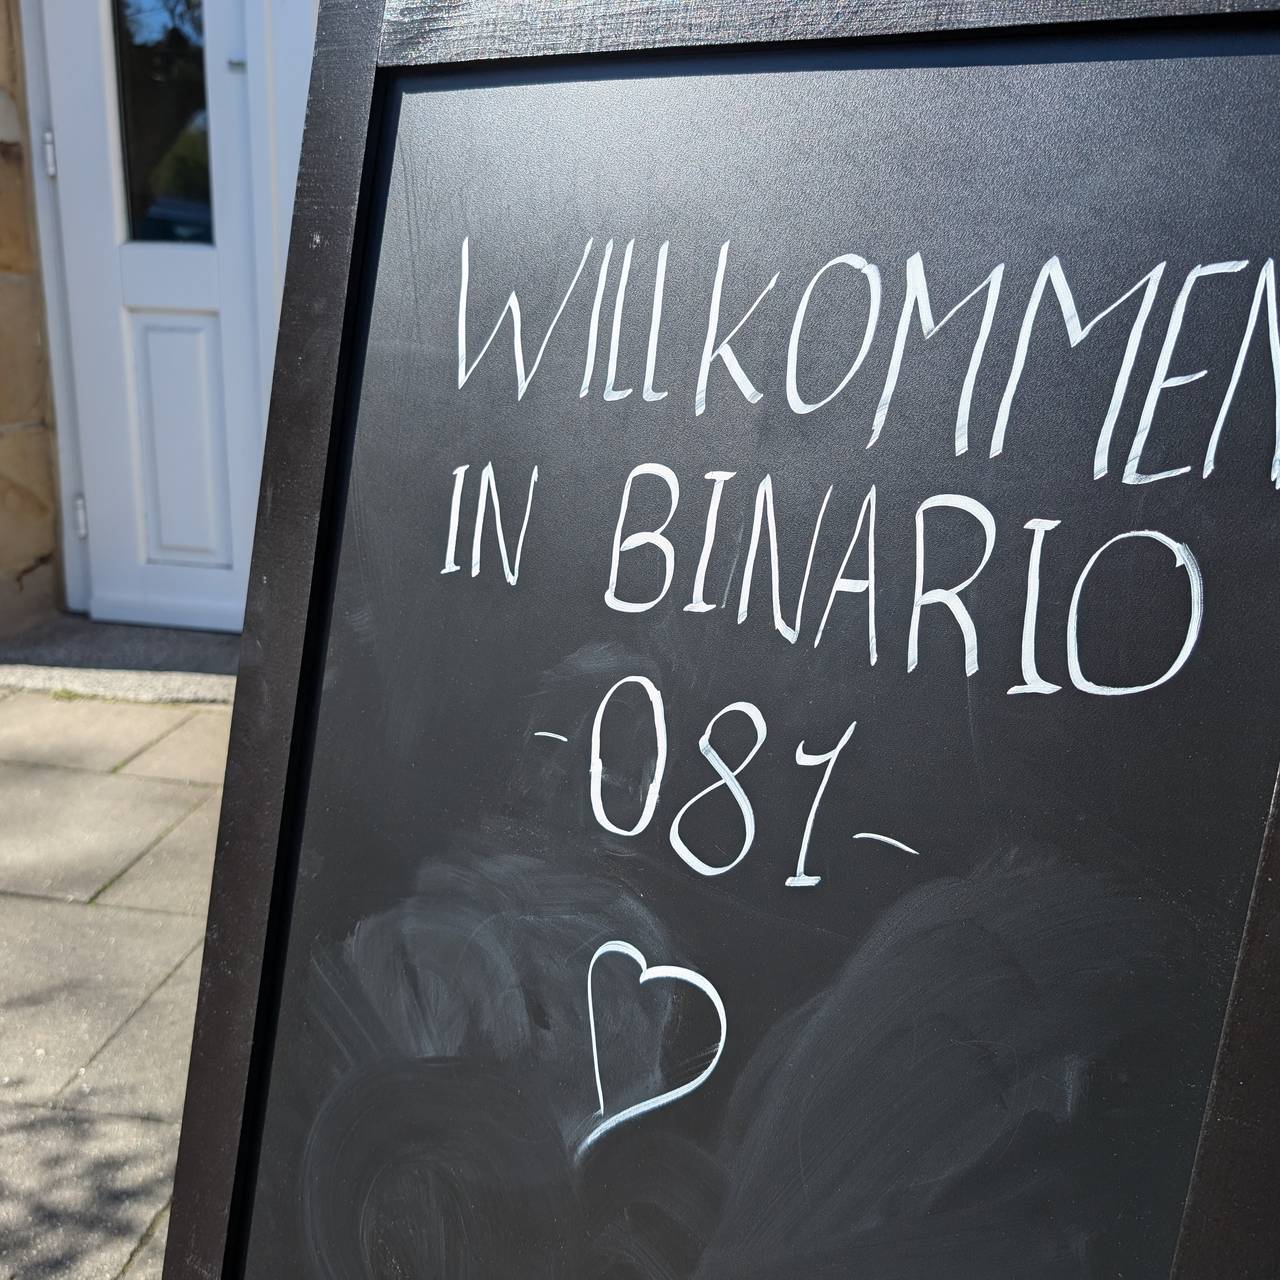 WILLKOMMEN
IN BINARIO
-081-